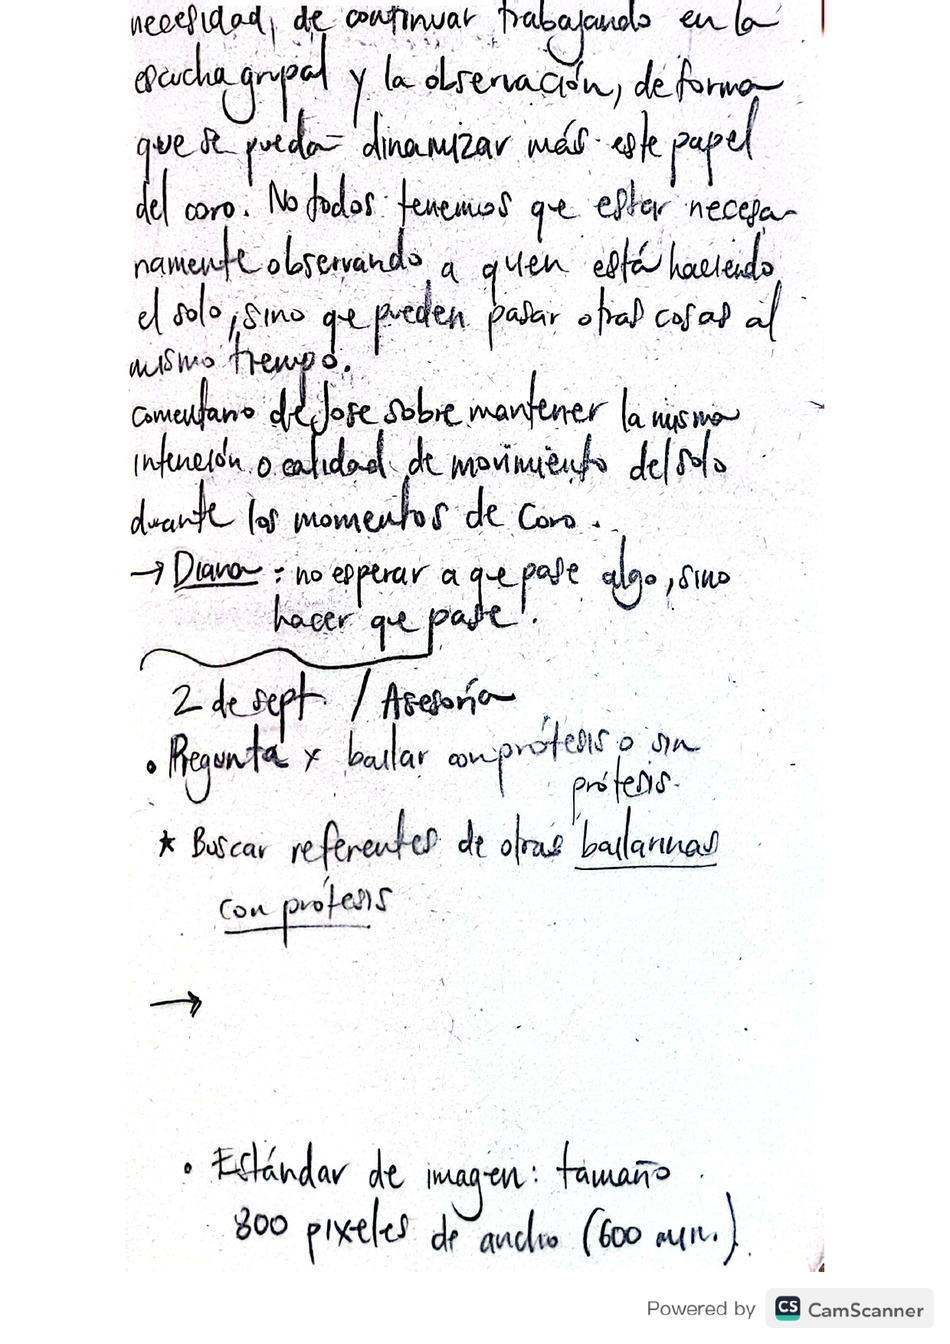 necesidad, de continuar trabajando en la
escucha grupal y la observación, de forma
que se pueda dinamizar más este papel
del coro. No todos tenemos que estar necesa-
riamente observando a quien está haciendo
el solo, sino que pueden pasar otras cosas al
mismo tiempo.
comentario de Jose sobre mantener la misma
intención o calidad de movimiento del solo
durante los momentos de coro.
→ Diana: no esperar a que pase algo, sino
hacer que pase!
2 de sept / Asesoría
• Pregunta x bailar con prótesis o sin
prótesis.
* Buscar referentes de otras bailarinas
con prótesis
→
• Estándar de imagen: tamaño
800 pixeles de ancho (600 min.)
Powered by CS CamScanner